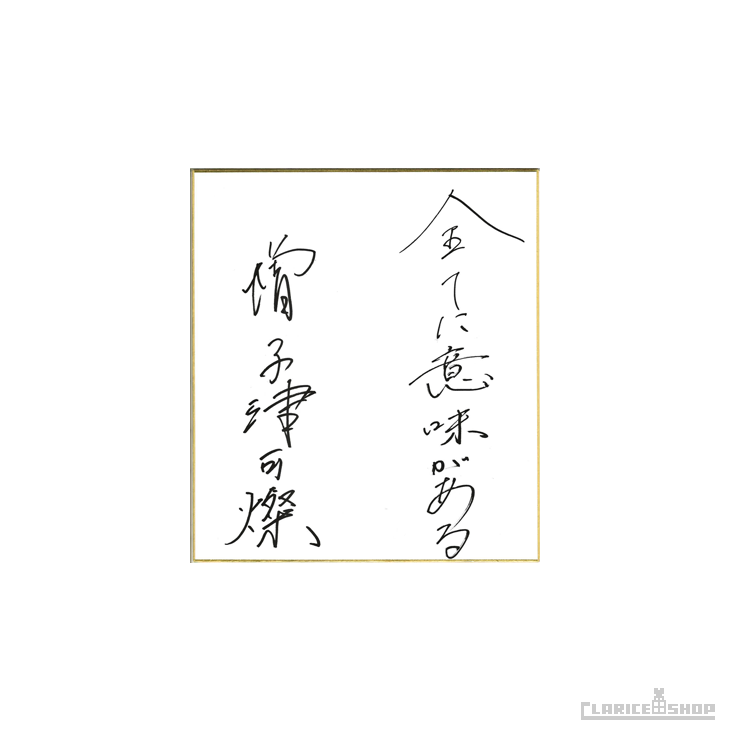 全てに意味がある
増子津可燦
CLARICE SHOP